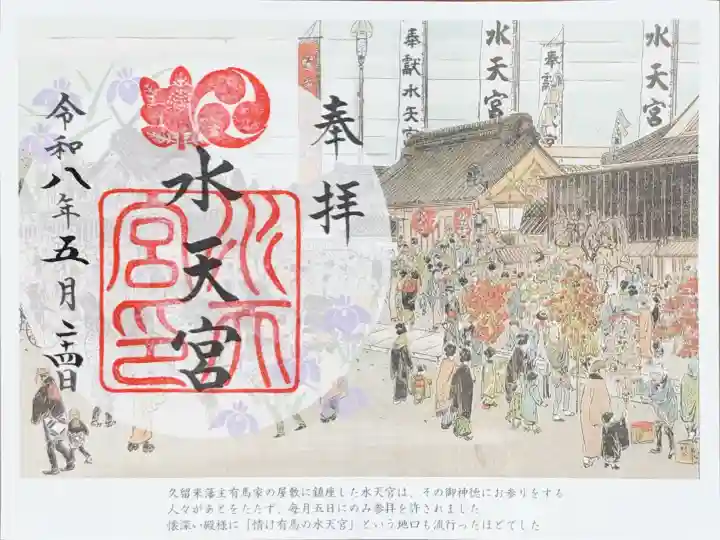 奉献水天宮
水天宮
奉献
水天宮
奉拝
水天宮
水天宮印
令和八年五月二十四日
久留米藩主有馬家の屋敷に鎮座した水天宮は、その御神徳にお参りをする
人々があとをたたず、毎月五日にのみ参拝を許されました
懐深い殿様に「情け有馬の水天宮」という地口も流行ったほどでした